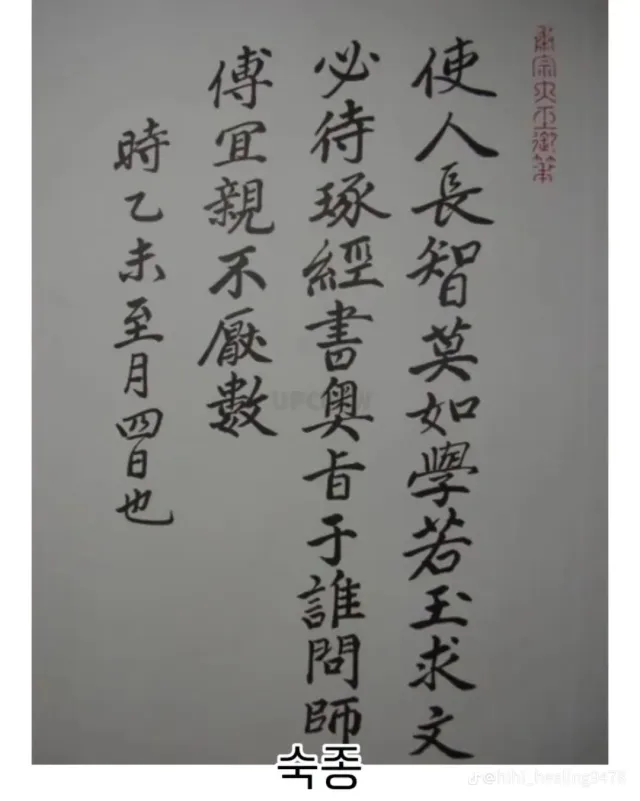 肅宗大王御筆
使人長智莫如學若玉求文
必待琢經書奧旨于誰問師
傅宜親不厭數
時乙未至月四日也
UPCLOW
숙종
@hihi_healing3478